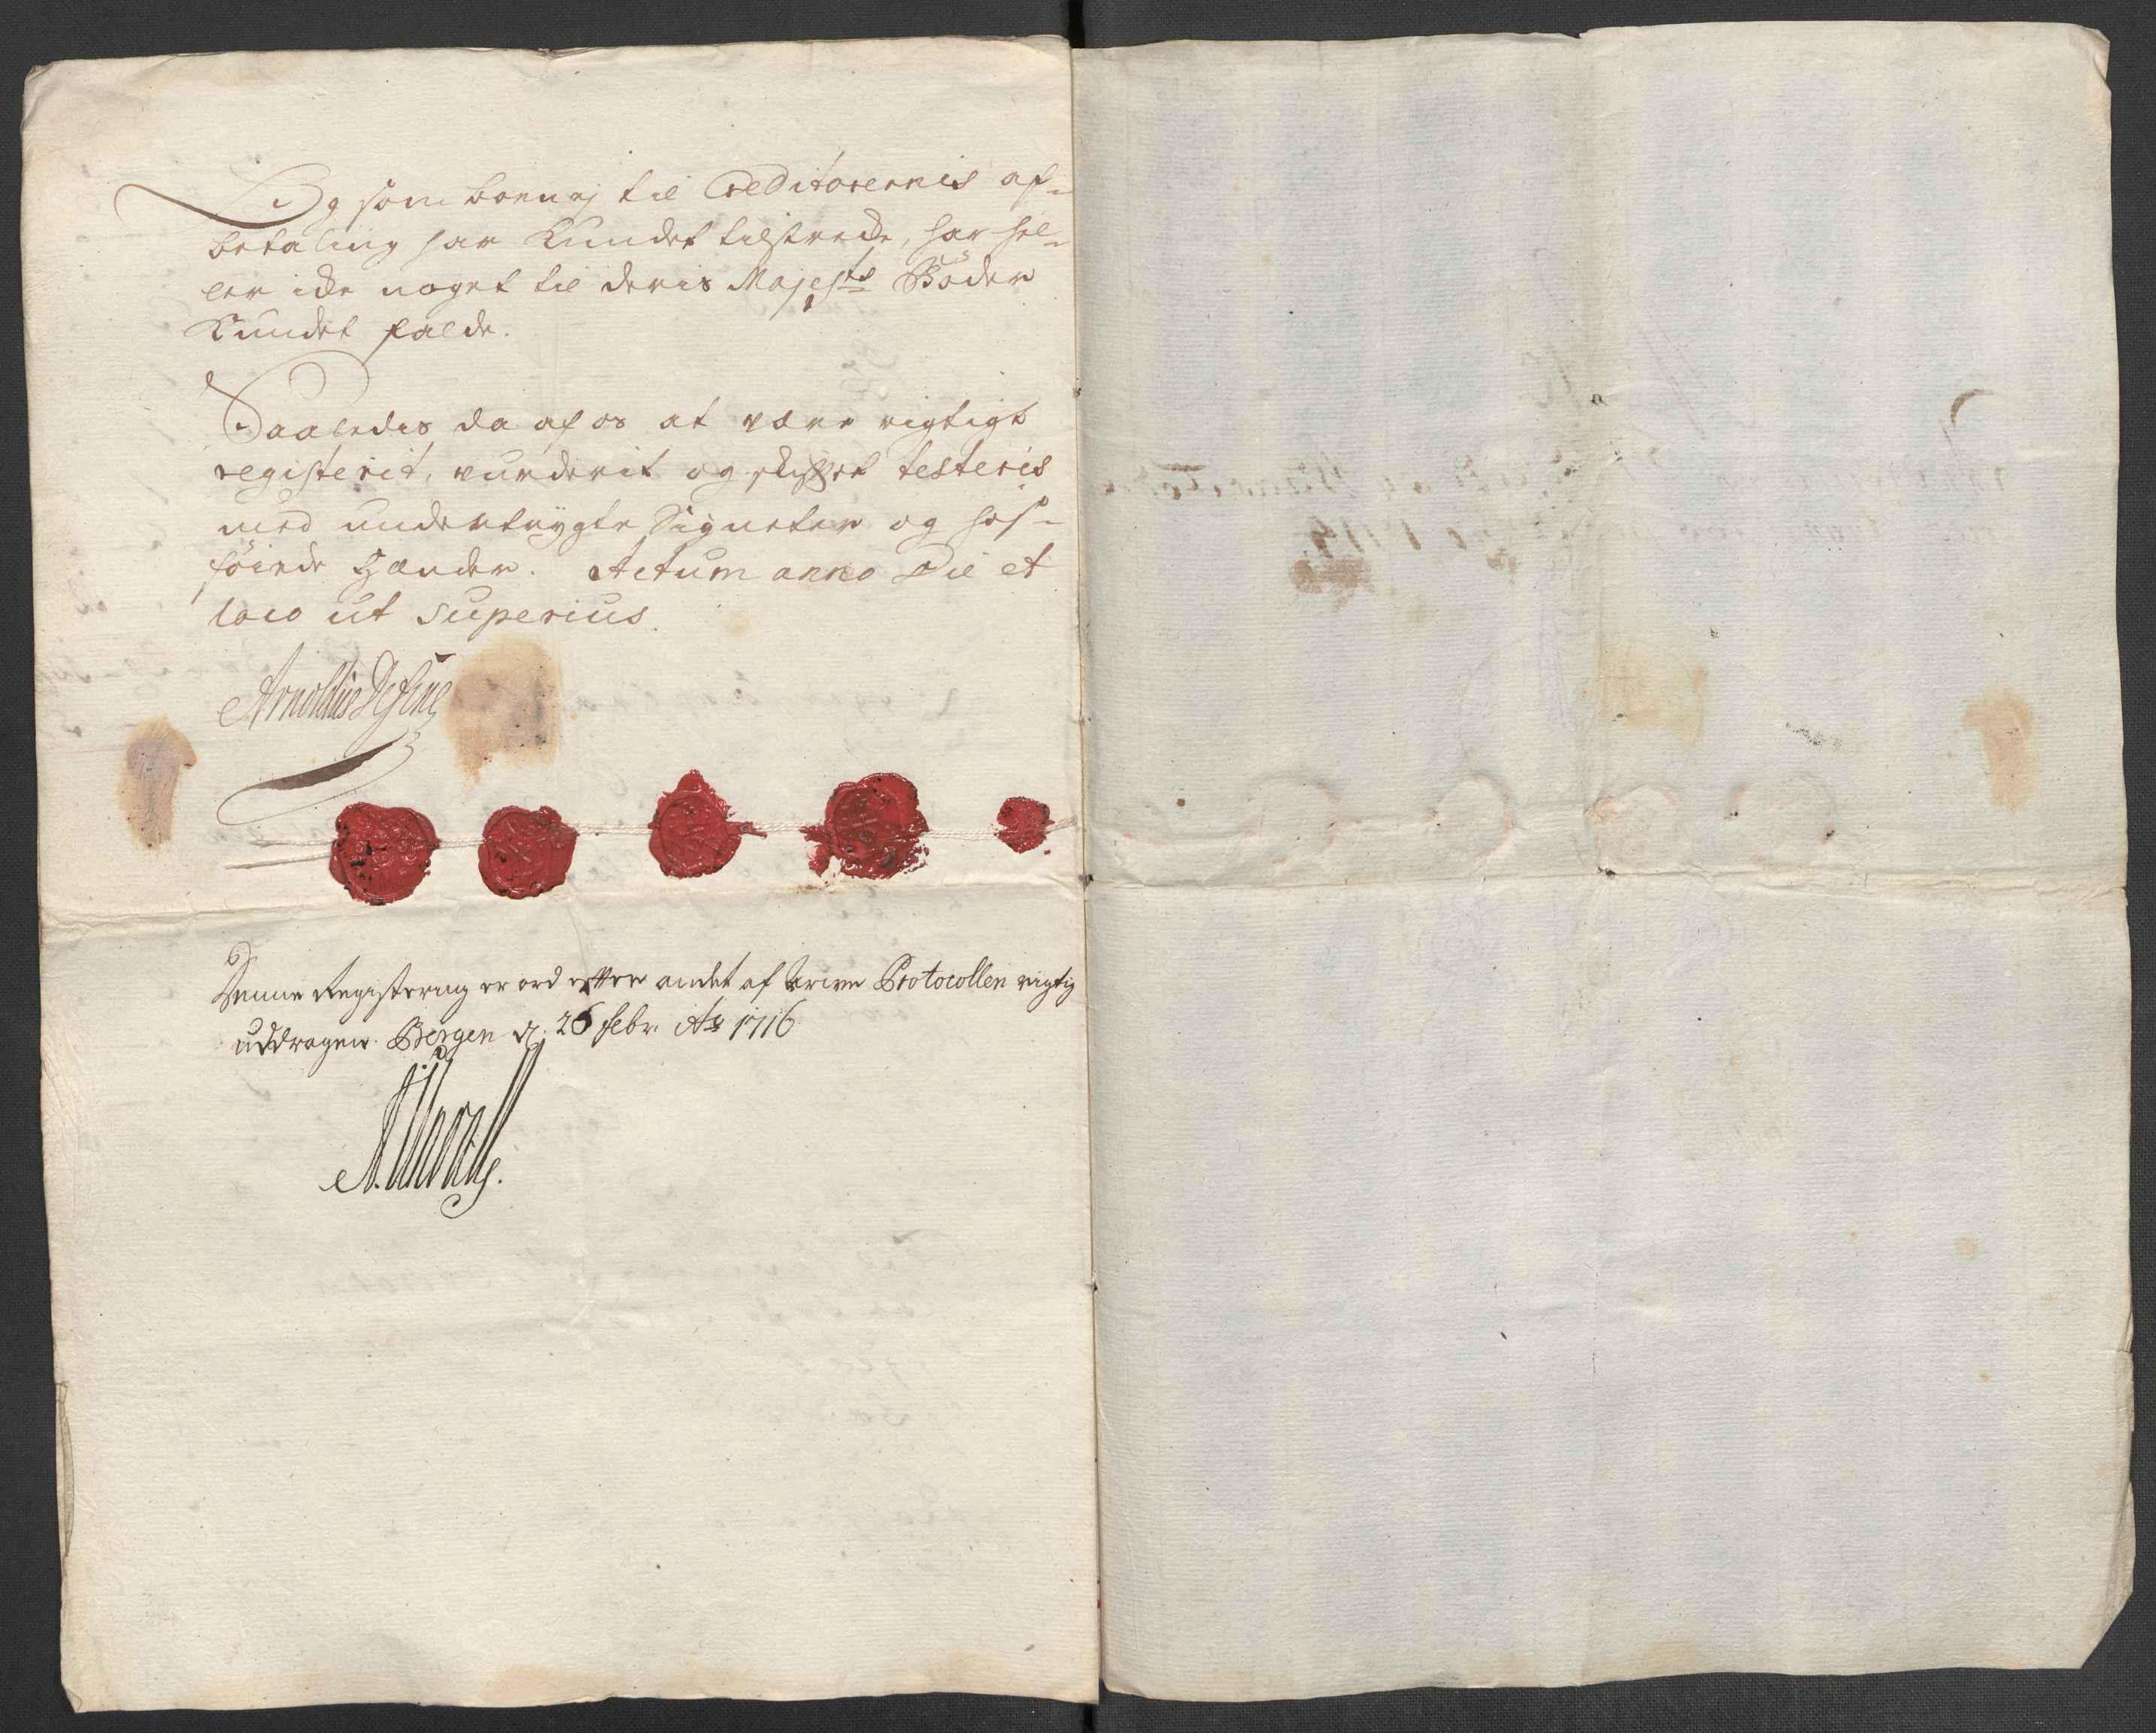 Og som boen ej til Creditorernis af-
betaling har Kundet tilstrecke, har hel-
ler icke noget til deris Majesta Bøder
Kundet falde.
Saaledis da af os at være rigtigt
registerit, vurderit og skiftet testeris
med undertrygte Signeter og hos-
føiede Hænder. Actum anno Die et
loco ut superius.
Arnoldus DeFine
Denne Registering er ord efter andet af Protocollen rigtig
uddragen. Bergen d. 26 febr. Ao 1716